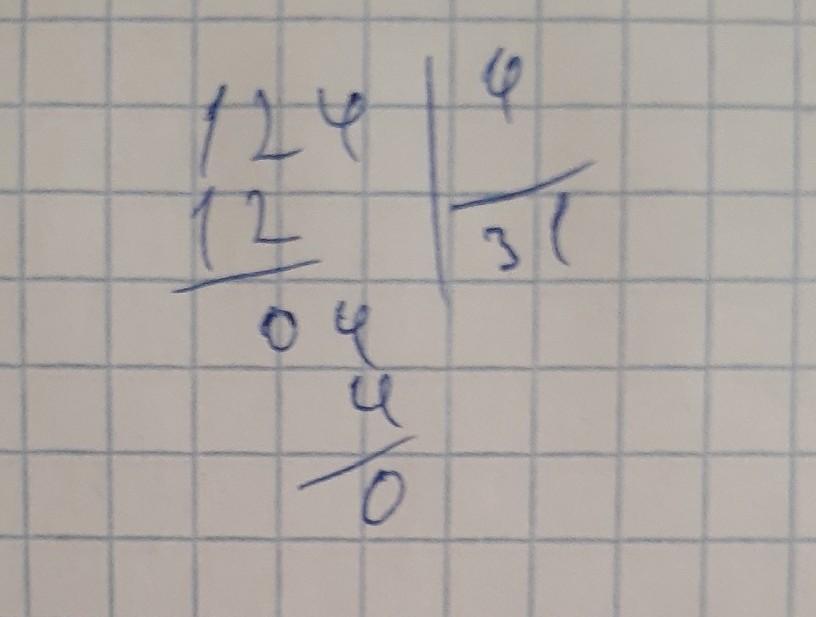 124 | 4
12 | 31
04
4
0